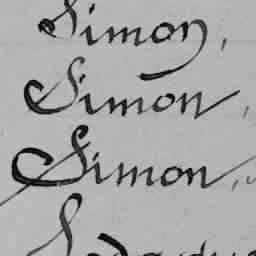 Simon,
Simon,
Simon,